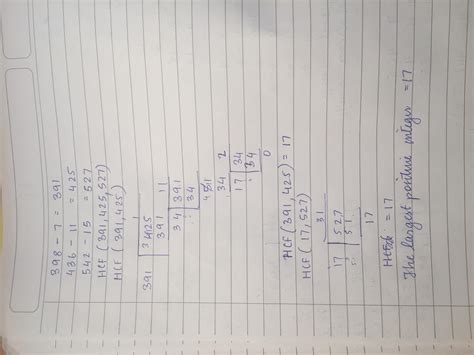 398 - 7 = 391
436 - 11 = 425
542 - 15 = 527
HCF (391, 425, 527)
HCF (391, 425)
1
391 425
391 11
34 391
34
51
34 2
17 34
34
0
HCF (391, 425) = 17
HCF (17, 527)
31
17 527
17
= 17
The largest positive integer = 17